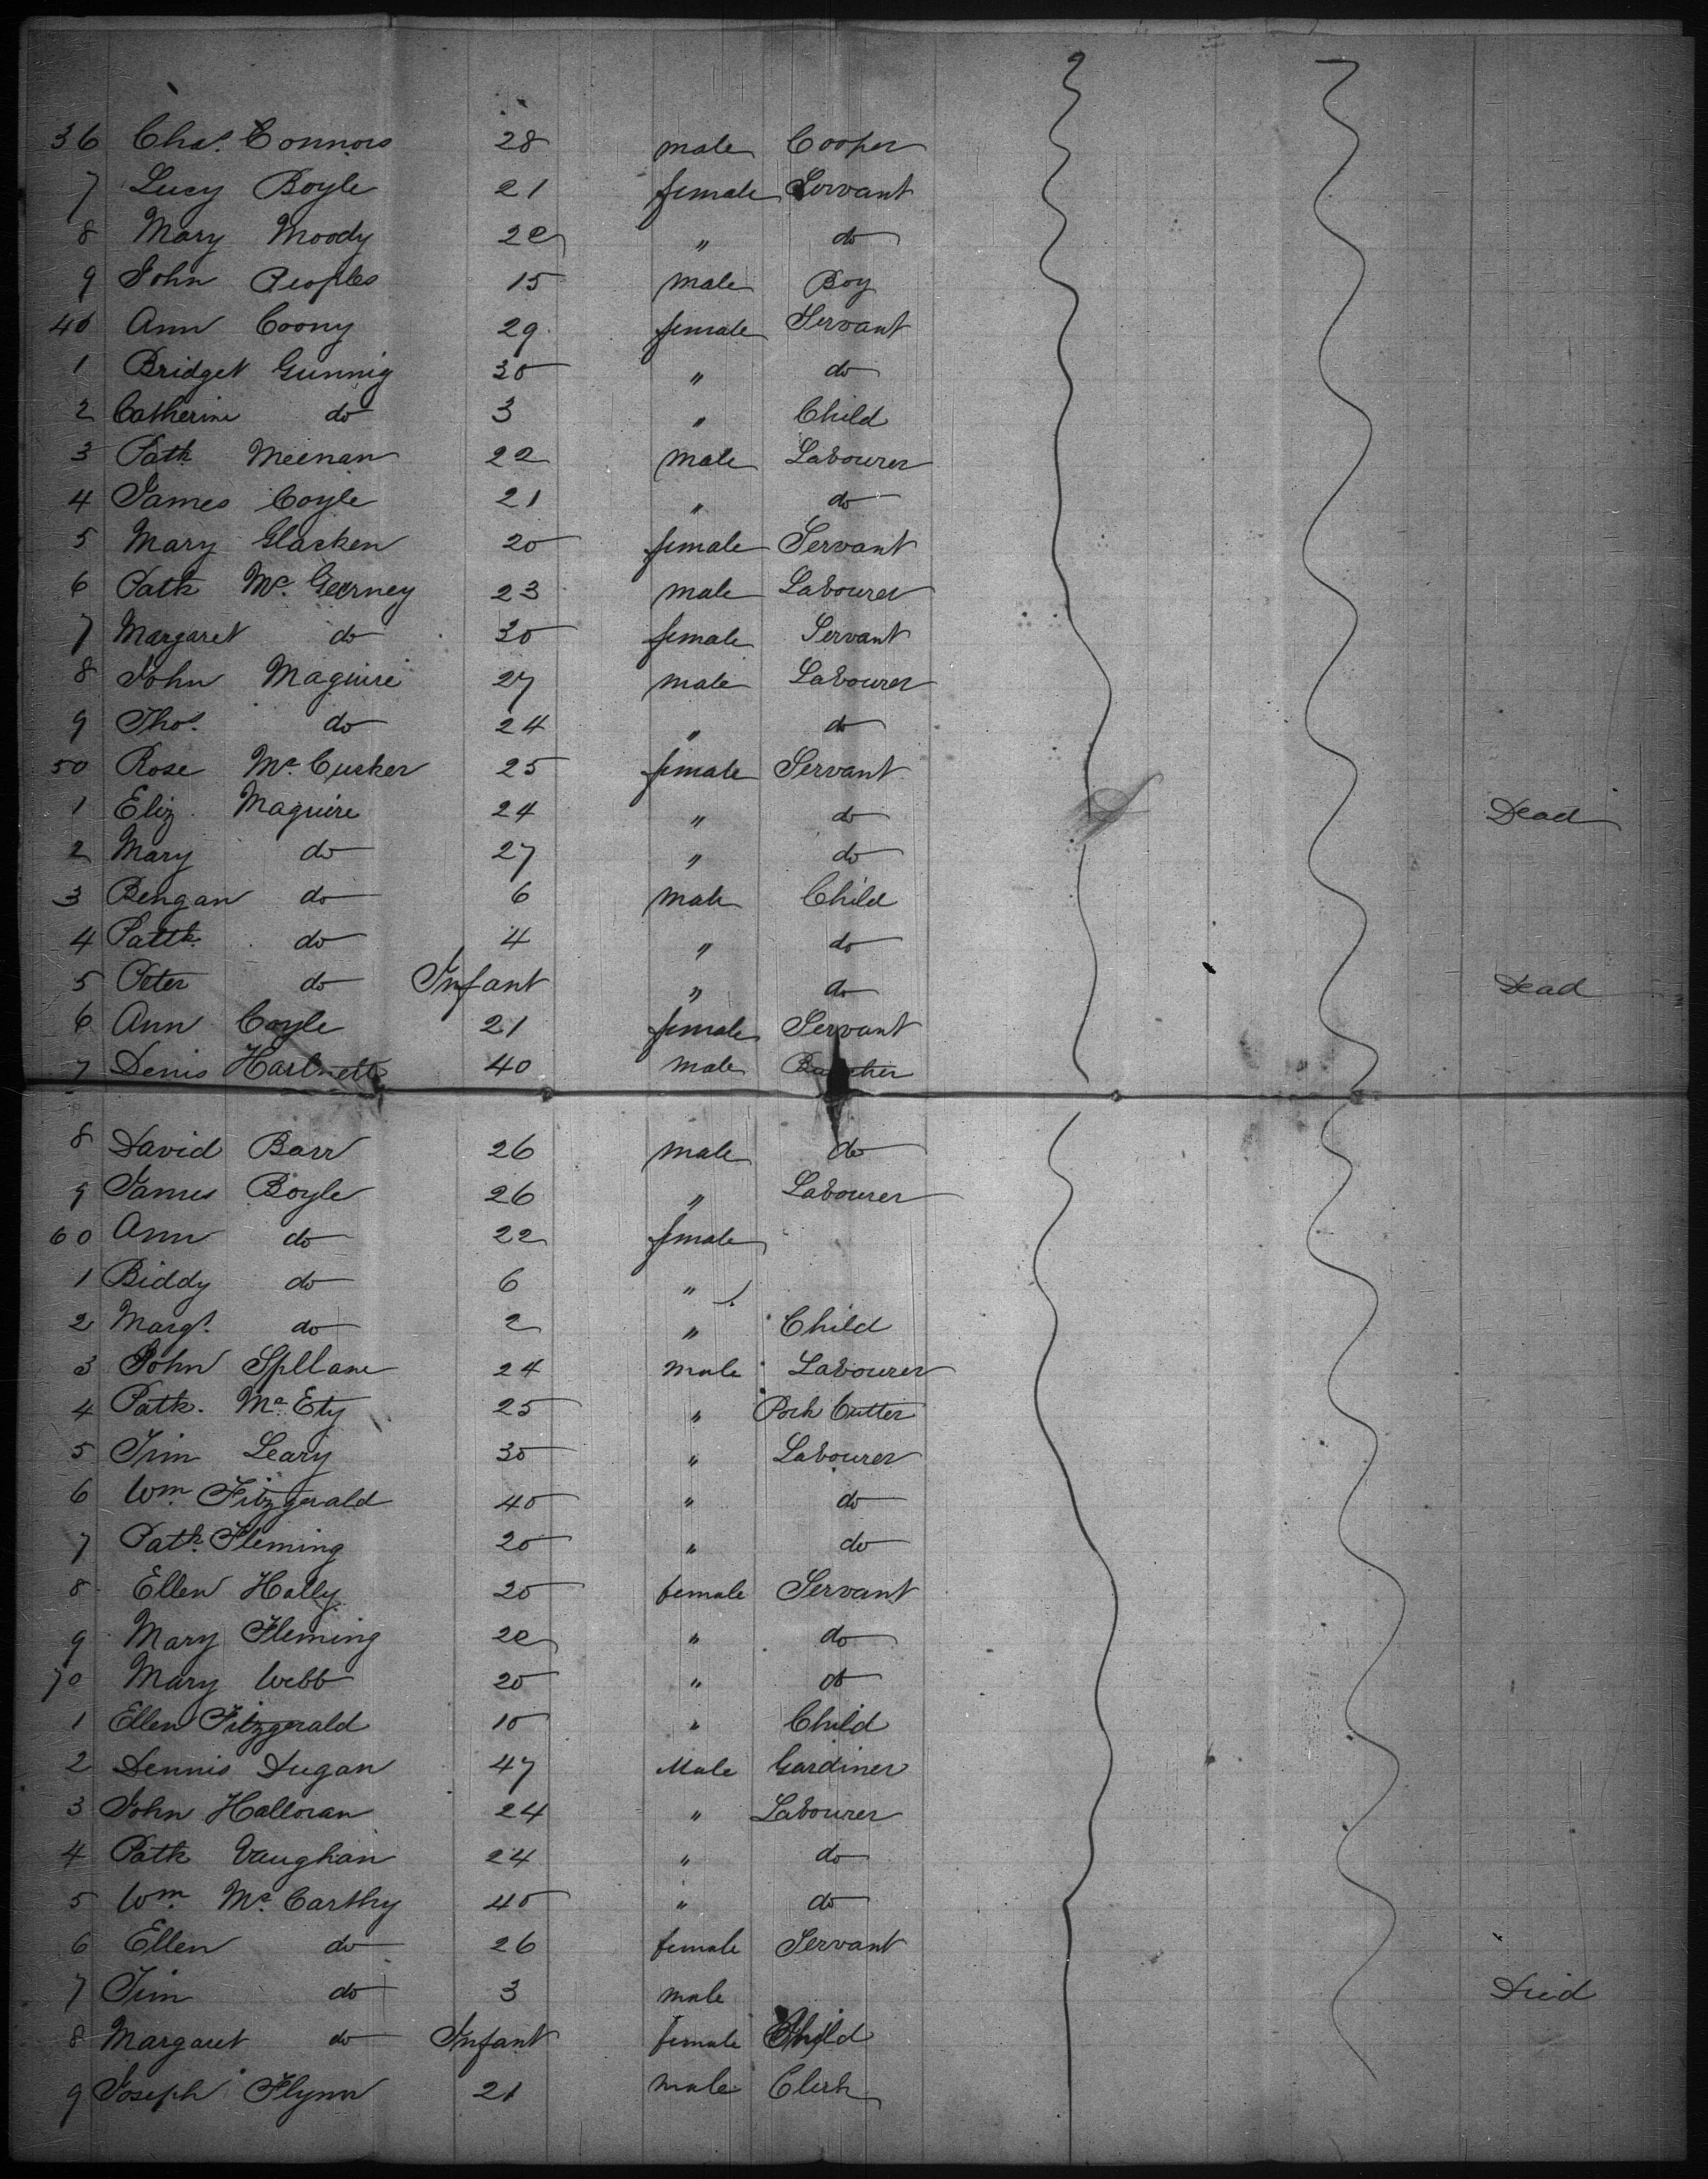 36 Chas. Connors 28 male Cooper
7 Lucy Boyle 21 female Servant
8 Mary Moody 20 " do
9 John Peoples 15 male Boy
40 Ann Coony 29 female Servant
1 Bridget Gunnig 30 " do
2 Catherine do 3 " Child
3 Patk Meenan 22 male Labourer
4 James Coyle 21 " do
5 Mary Glacken 20 female Servant
6 Patk Mc. Gerney 23 male Labourer
7 Margaret do 30 female Servant
8 John Maguire 27 male Labourer
9 Thos. do 24 " do
50 Rose Mc. Cusker 25 female Servant
1 Eliz. Maguire 24 " do Dead
2 Mary do 27 " do
3 Bengan do 6 male Child
4 Pattk. do 4 " do
5 Peter do Infant " do Dead
6 Ann Coyle 21 female Servant
7 Denis Hartnett 40 male
8 David Barr 26 male do
9 James Boyle 26 " Labourer
60 Ann do 22 female
1 Biddy do 6 "
2 Margt. do 2 " Child
3 John Spllane 24 male Labourer
4 Patk. Mc Ety 25 " Pork Cutter
5 Tim Leary 30 " Labourer
6 Wm. Fitzgerald 40 " do
7 Patk. Fleming 20 " do
8 Ellen Hally 20 female Servant
9 Mary Fleming 20 " do
70 Mary Webb 20 " do
1 Ellen Fitzgerald 10 " Child
2 Dennis Dugan 47 Male Gardiner
3 John Halloran 24 " Labourer
4 Patk Vaughan 24 " do
5 Wm. Mc. Carthy 40 " do
6 Ellen do 26 female Servant
7 Tim do 3 male Died
8 Margaret do Infant female Child
9 Joseph Flynn 21 male Clerk